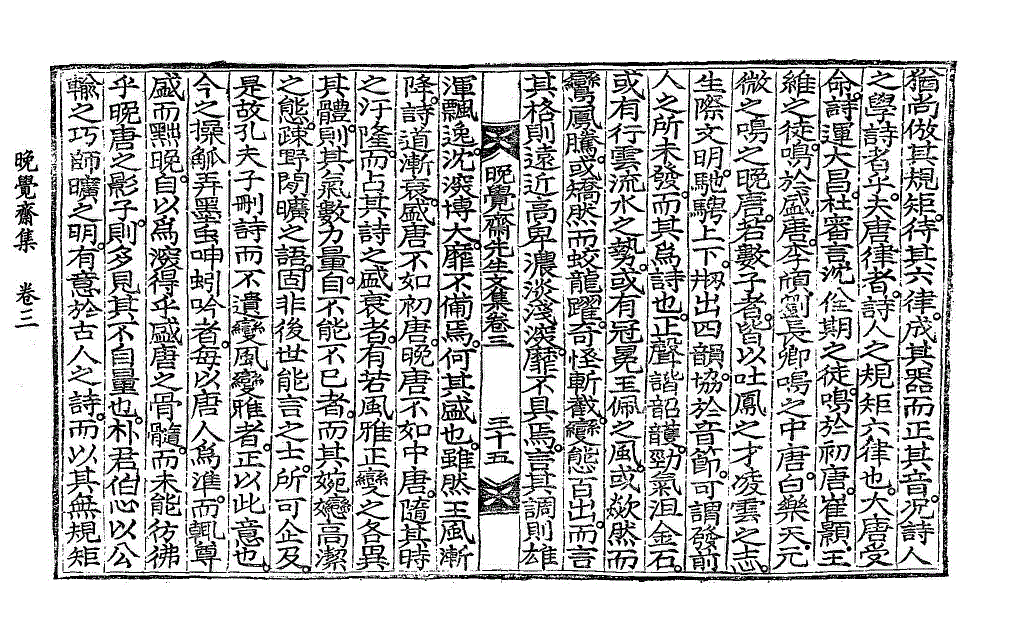 猶尚倣其規矩。待其六律。成其器而正其音。況詩人
之學詩者乎。夫唐律者。詩人之規矩六律也。大唐受
命。詩運大昌。杜審言沈佺期之徒。鳴於初唐。崔顥王
維之徒。鳴於盛唐。李頎劉長卿鳴之中唐。白樂天元
微之鳴之晩唐。若數子者。皆以吐鳳之才。凌雲之志。
生際文明。馳騁上下。刱出四韻。協於音節。可謂發前
人之所未發。而其爲詩也。正聲諧韶頀。勁氣沮金石。
或有行雲流水之勢。或有冠冕玉佩之風。或歘然而
鸞鳳騰。或矯然而蛟龍躍。奇怪斬截。變態百出。而言
其格則遠近高卑濃淡淺深。靡不具焉。言其調則雄
晩覺齋先生文集卷三 三十五
渾飄逸沈深博大。靡不備焉。何其盛也。雖然王風漸
降。詩道漸衰。盛唐不如初唐。晩唐不如中唐。隨其時
之汙隆。而占其詩之盛衰者。有若風雅正變之各異
其體。則其氣數力量。自不能不已者。而其婉孌高潔
之態。踈野閒曠之語。固非後世能言之士。所可企及。
是故孔夫子刪詩而不遺變風變雅者。正以此意也。
今之操觚弄墨虫呻蚓吟者。每以唐人爲準。而輒尊
盛而黜晩。自以爲深得乎盛唐之骨髓。而未能彷彿
乎晩唐之影子。則多見其不自量也。朴君伯心以公
輸之巧師曠之明。有意於古人之詩。而以其無規矩
晩覺齋集 卷三